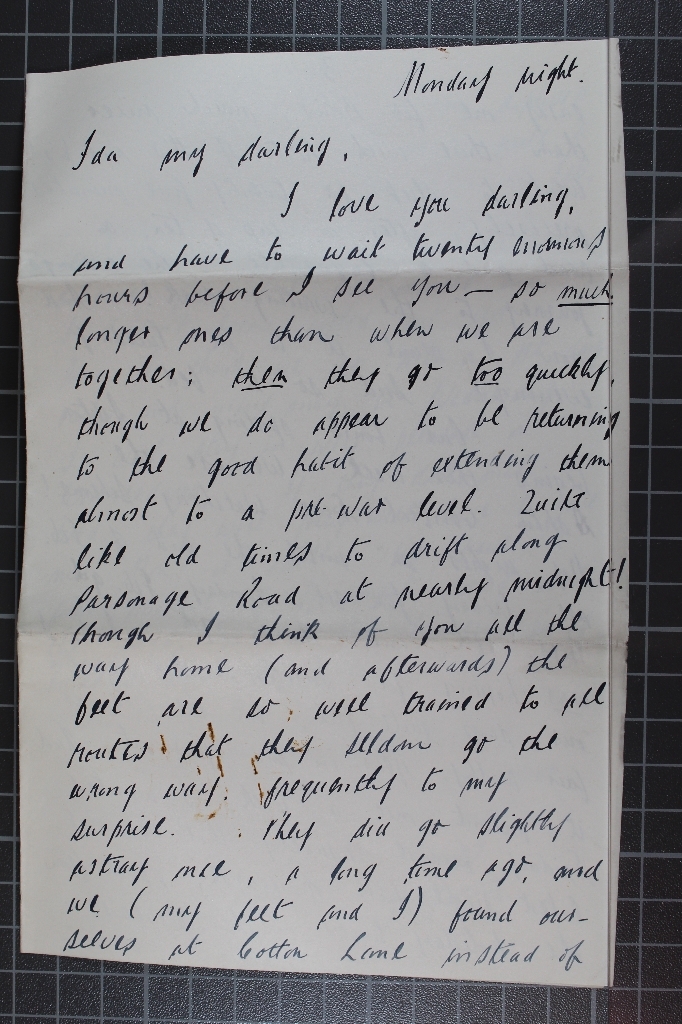 Monday night.
Ida my darling,
I love you darling,
and have to wait twenty enormous
hours before I see you — so much
longer ones than when we are
together; then they go too quickly,
though we do appear to be returning
to the good habit of extending them
almost to a pre-war level. Quite
like old times to drift along
Parsonage Road at nearly midnight!
Though I think of you all the
way home (and afterwards) the
feet are so well trained to all
routes that they seldom go the
wrong way, frequently to my
surprise. They did go slightly
astray once, a long time ago, and
we (my feet and I) found our-
selves at Cotton Lane instead of